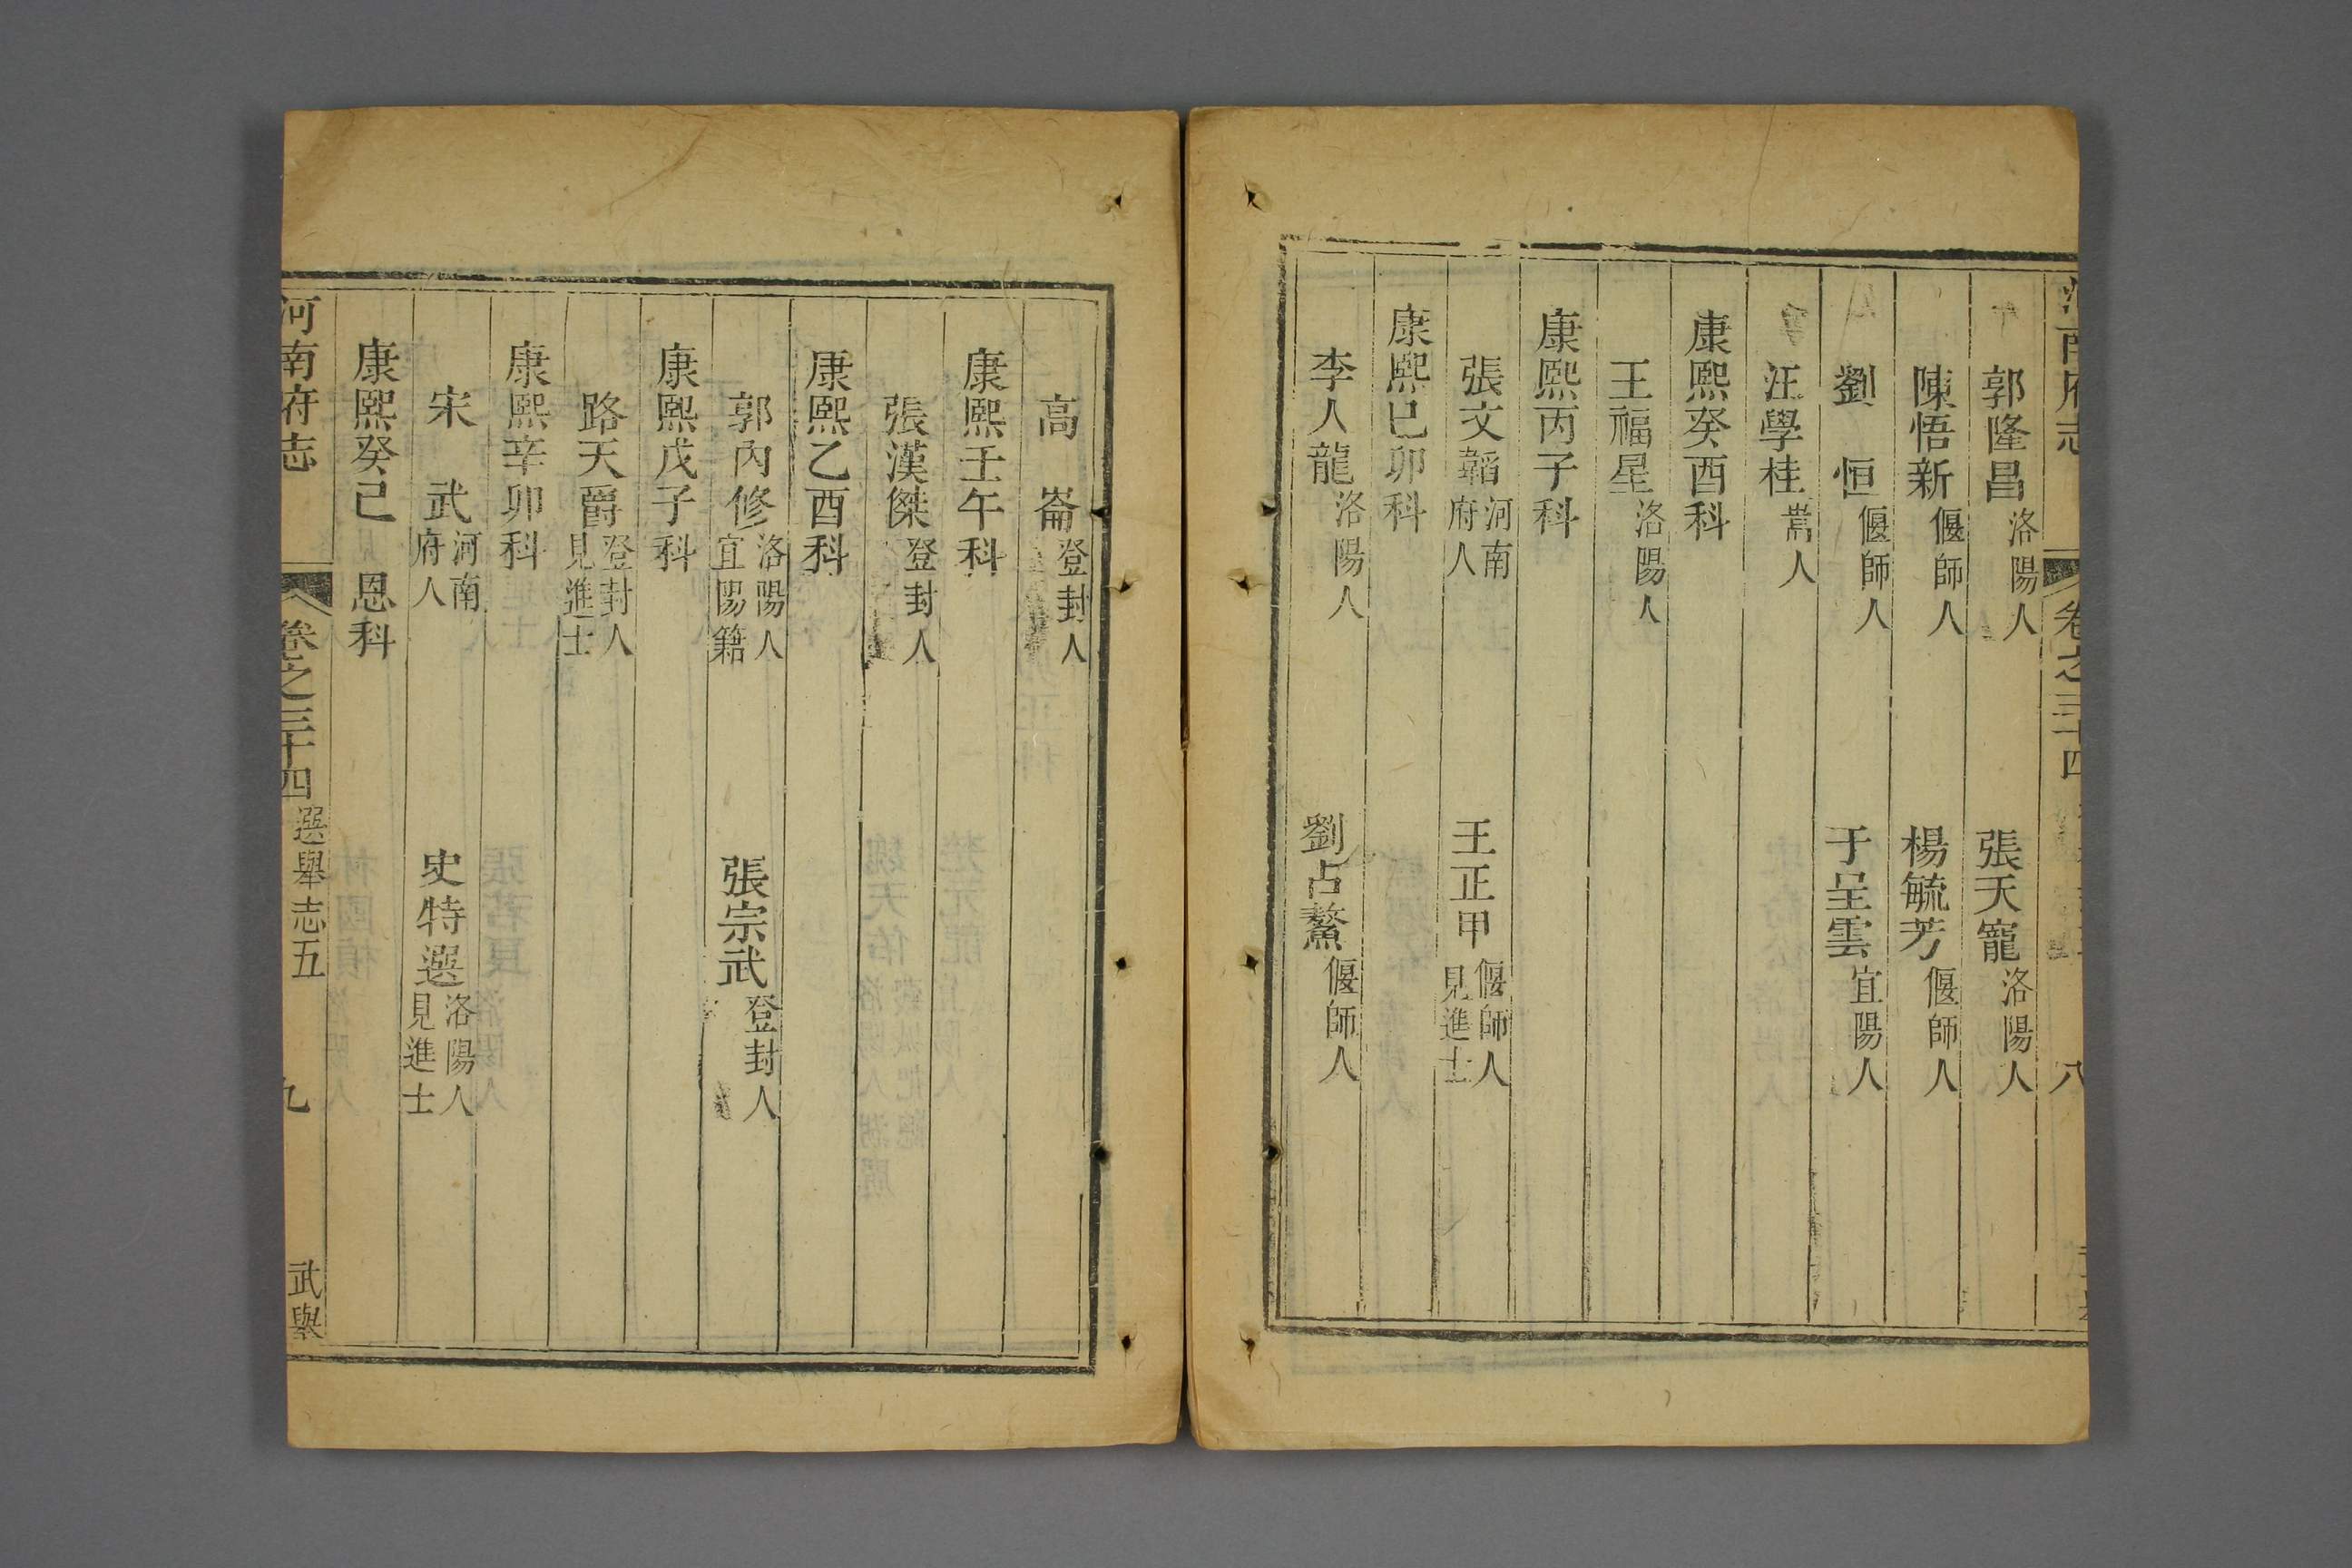 郭隆昌洛陽人 張天寵洛陽人
陳悟新偃師人 楊毓芳偃師人
劉 恒偃師人 于呈雲宜陽人
汪學桂嵩人
康熙癸酉科
王福星洛陽人
康熙丙子科
張文韜河南府人 王正甲偃師人見進士
康熙己卯科
李人龍洛陽人 劉占鰲偃師人
高 崙登封人
康熙壬午科
張漢傑登封人
康熙乙酉科
郭內修洛陽人宜陽籍 張宗武登封人
康熙戊子科
路天爵登封人見進士
康熙辛卯科
宋 武河南府人 史特選洛陽人見進士
康熙癸己 恩科
河南府志 卷之三十四 選舉志五 九 武舉